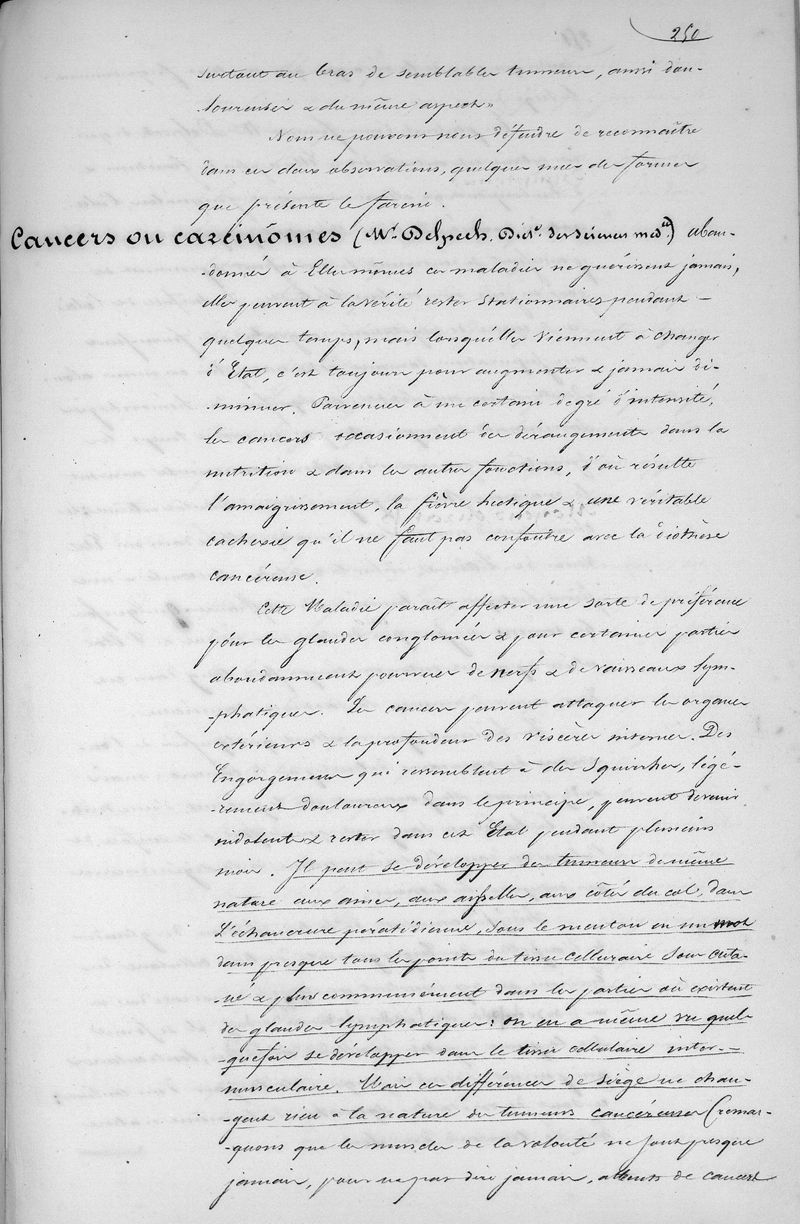 250
surtout au bras de semblables tumeurs, aussi dou-
-loureuses & du même aspect »
Nous ne pouvons nous défendre de reconnaître
dans ces deux observations, quelques unes des formes
que présente le farcin.
Cancers ou carcinômes (Mr. Delpech. Dict. des Sciences med.les) aban-
-donnés à Elles mêmes ces maladies ne guérissent jamais,
elles peuvent à la vérité rester stationnaires pendant -
quelques temps, mais lorsqu'elles viennent à changer
d'Etat, c'est toujours pour augmenter & jamais di-
-minuer. Parvenus à un certain degré d'intensité,
les cancers occasionnent des dérangements dans la
nutrition & dans les autres fonctions, d'où résulte
l'amaigrissement, la fièvre hectique & une véritable
cachexie qu'il ne faut pas confondre avec la diathèse
cancéreuse.
Cette Maladie parait affecter une sorte de préférence
pour les glandes conglomérées & pour certaines parties
abondamment pourvues de nerfs & de vaisseaux lym-
-phatiques. Les cancers peuvent attaquer les organes
extérieurs & la profondeur des viscères internes. Des
Engorgements qui ressemblent à des Squirrhes, légè-
-rement douloureux dans le principe, peuvent devenir
indolents & rester dans cet Etat pendant plusieurs
mois. Il peut se développer des tumeurs de même
nature aux aines, aux aisselles, aux côtés du col, dans
L'échancrure parotidienne, sous le menton en un mot
dans presque tous les points du tissu cellulaire sous cuta-
-né & plus communément dans les parties où existent
des glandes lymphatiques: on en a même vu quel-
-quefois se développer dans le tissu cellulaire inter-
-musculaire. Mais ces différences de siège ne chan-
-gent rien à la nature des tumeurs cancéreuses (remar-
-quons que les muscles de la volonté ne sont presque
jamais, pour ne pas dire jamais, atteints de cancers